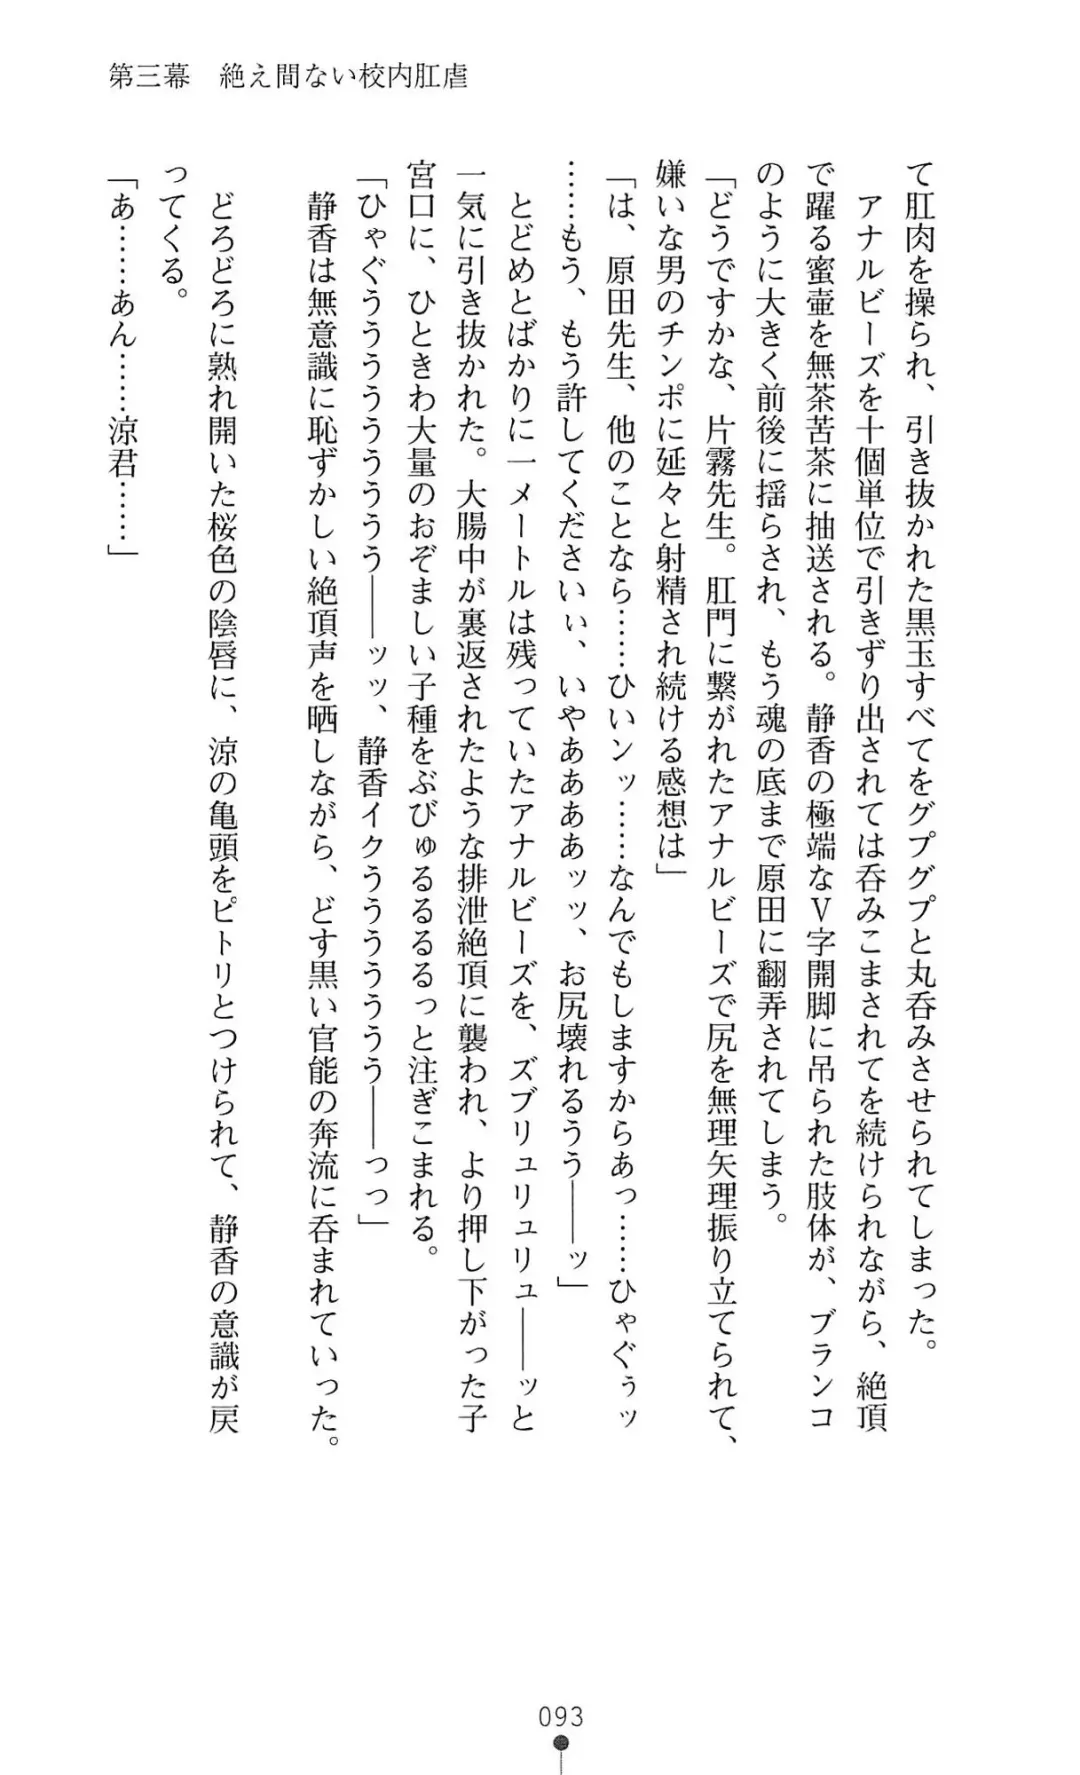 第三幕　絶え間ない校内肛虐
て肛肉を操られ、引き抜かれた黒玉すべてをグプグプと丸呑みさせられてしまった。
アナルビーズを十個単位で引きずり出されては呑みこまされてを続けられながら、絶頂
で躍る蜜壷を無茶苦茶に抽送される。静香の極端なＶ字開脚に吊られた肢体が、ブランコ
のように大きく前後に揺らされ、もう魂の底まで原田に翻弄されてしまう。
「どうですかな、片霧先生。肛門に繋がれたアナルビーズで尻を無理矢理振り立てられて、
嫌いな男のチンポに延々と射精され続ける感想は」
「は、原田先生、他のことなら……ひいンッ……なんでもしますからあっ……ひゃぐぅッ
……もう、もう許してくださいぃ、いやああああッッ、お尻壊れるうう――ッ」
とどめとばかりに一メートルは残っていたアナルビーズを、ズブリュリュリュ――ッと
一気に引き抜かれた。大腸中が裏返されたような排泄絶頂に襲われ、より押し下がった子
宮口に、ひときわ大量のおぞましい子種をぶびゅるるるるっと注ぎこまれる。
「ひゃぐうううううううう――ッッ、静香イクうううううう――っっ」
静香は無意識に恥ずかしい絶頂声を晒しながら、どす黒い官能の奔流に呑まれていった。
どろどろに熟れ開いた桜色の陰唇に、涼の亀頭をピトリとつけられて、静香の意識が戻
ってくる。
「あ……あん……涼君……」
093